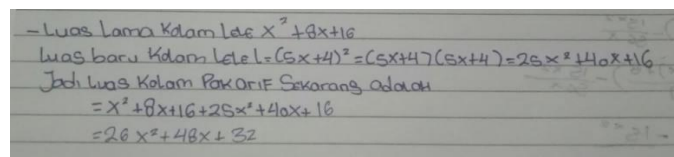 - Luas Lama Kolam Lele x² + 8x + 16
Luas baru Kolam Lele L = (5x+4)² = (5x+4)(5x+4) = 25x² + 40x + 16
Jadi Luas Kolam Pak Arif Sekarang adalah
= x² + 8x + 16 + 25x² + 40x + 16
= 26x² + 48x + 32